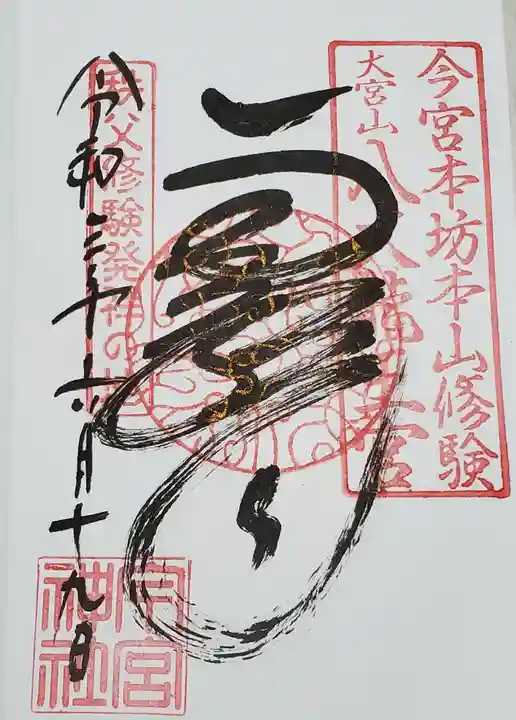 今宮本坊本山修験
大宮山
八大龍王宮
秩父修験発祥の地
令和三年六月十九日
今宮
神社